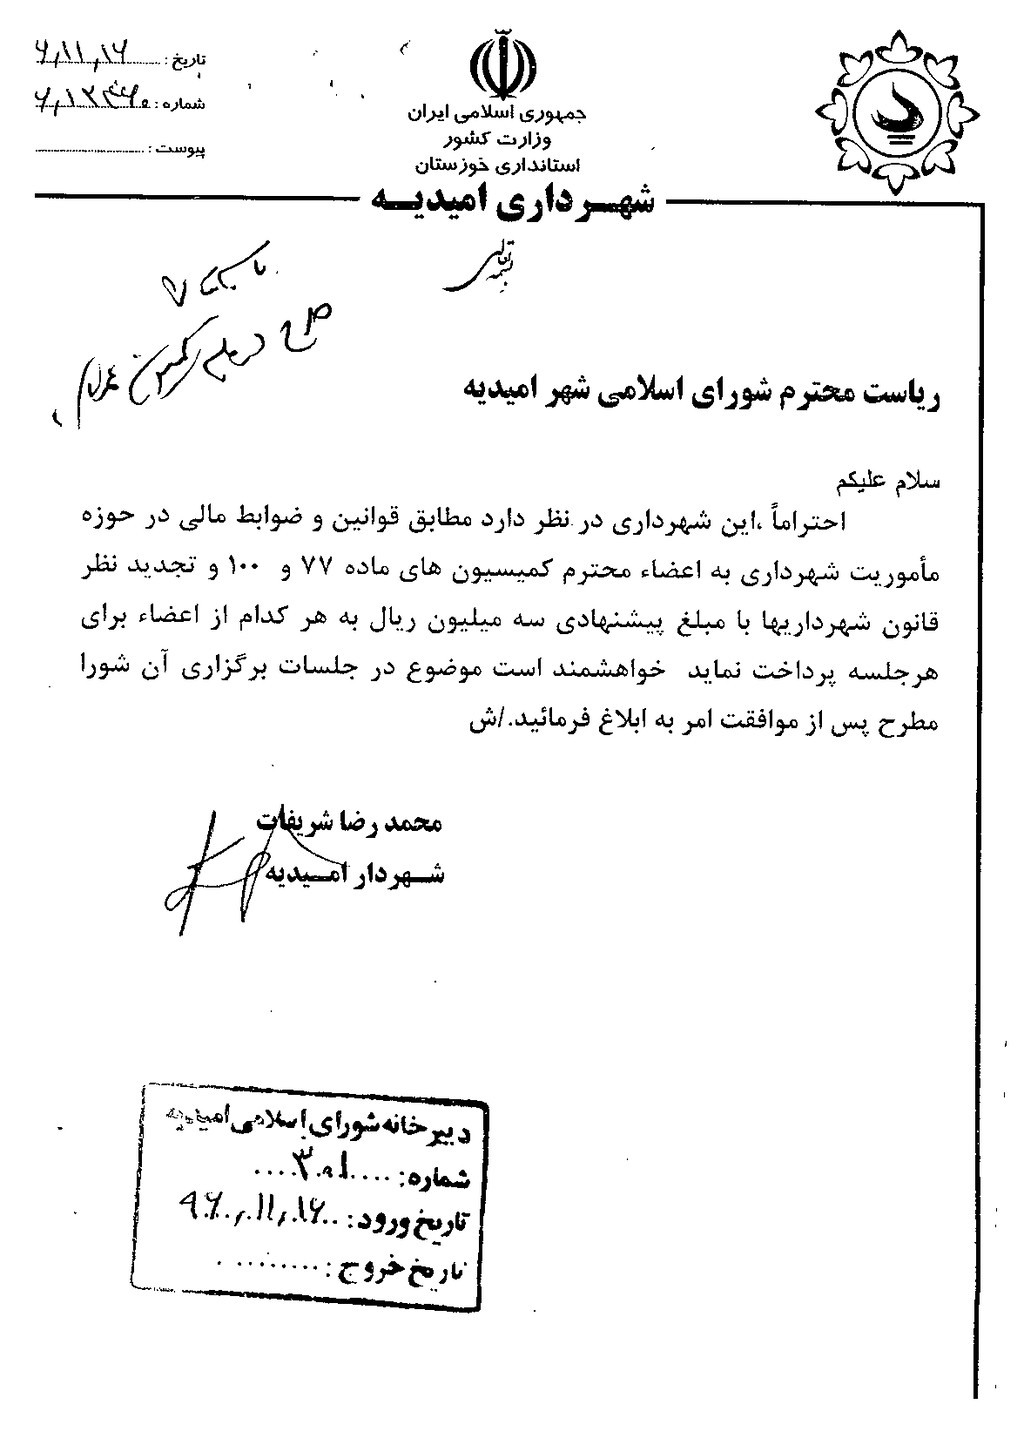 جمهوری اسلامی ایران
وزارت کشور
استانداری خوزستان
شهرداری امیدیه
تاریخ :
شماره :
پیوست :
بسمه تعالی
طرح در کمیسیون
ریاست محترم شورای اسلامی شهر امیدیه
سلام علیکم
احتراماً ،این شهرداری در نظر دارد مطابق قوانین و ضوابط مالی در حوزه
مأموریت شهرداری به اعضاء محترم کمیسیون های ماده ۷۷ و ۱۰۰ و تجدید نظر
قانون شهرداریها با مبلغ پیشنهادی سه میلیون ریال به هر کدام از اعضاء برای
هرجلسه پرداخت نماید خواهشمند است موضوع در جلسات برگزاری آن شورا
مطرح پس از موافقت امر به ابلاغ فرمائید./ش
محمد رضا شریفات
شهردار امیدیه
دبیرخانه شورای اسلامی امیدیه
شماره:
تاریخ ورود:
تاریخ خروج: